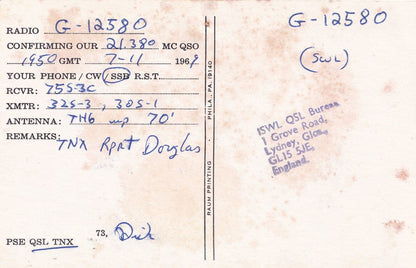 RADIO G-12580
CONFIRMING OUR 21.380 MC QSO
1950 GMT 7-11 1969
YOUR PHONE / CW / SSB R.S.T.
RCVR: 75S-3C
XMTR: 32S-3, 30S-1
ANTENNA: TH6 up 70'
REMARKS:
TNX Rprt Douglas
73, Dick
PSE QSL TNX
RAUM PRINTING • PHILA., PA. 19140
G-12580
(SWL)
ISWL QSL Bureau
1 Grove Road,
Lydney, Glos.,
GL15 5JE,
England.